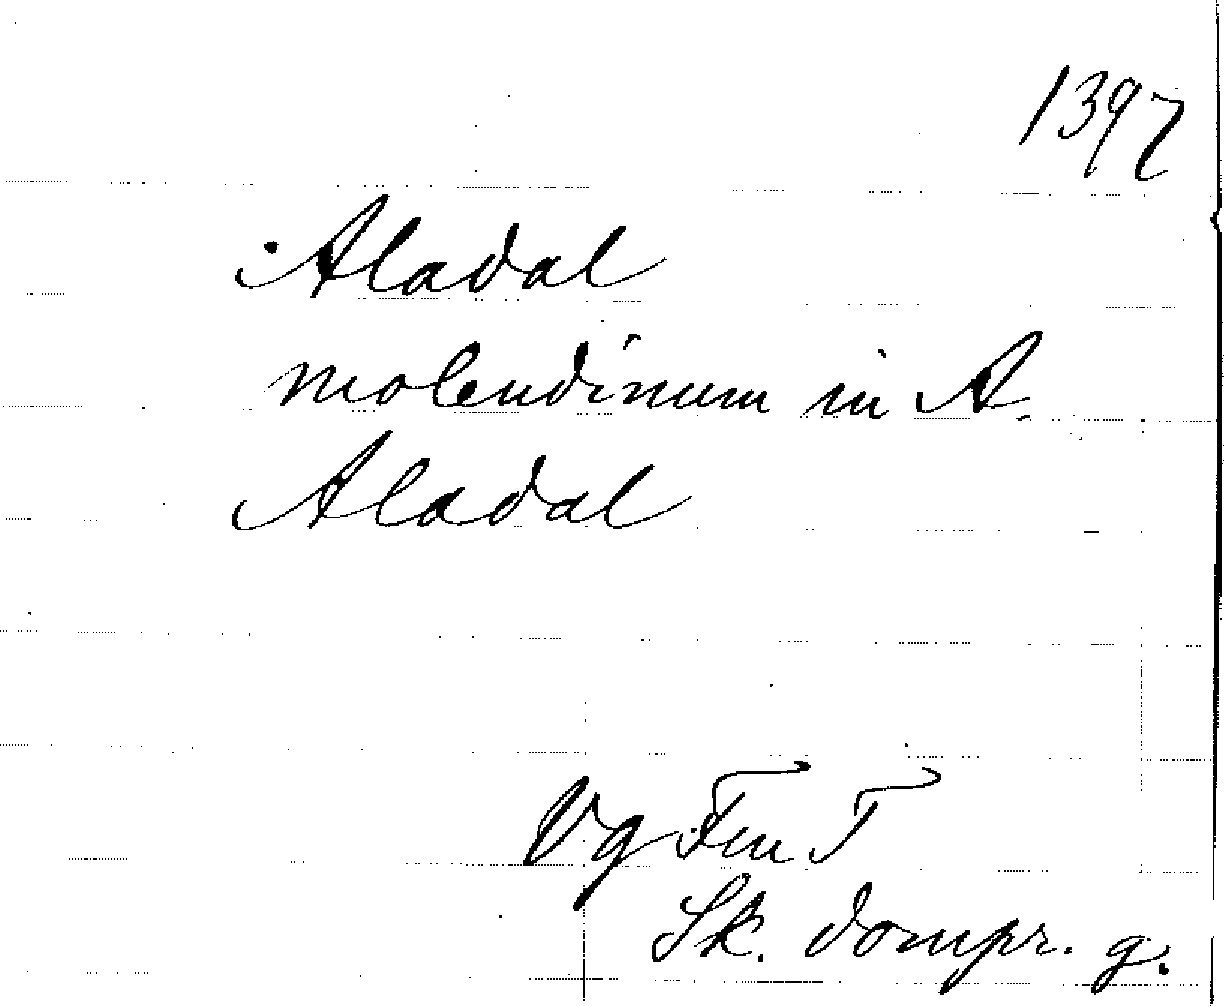 1397
Aladal
molendinum in A.
Aladal
Vg Fen T
Sk. dompr. g.